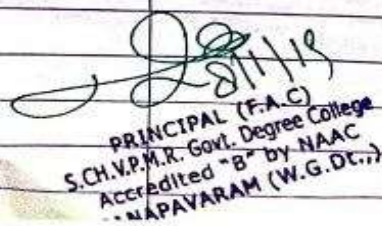 8/1/19
PRINCIPAL (F.A.C)
S.CH.V.P.M.R. Govt. Degree College
Accredited "B" by NAAC
NAPAVARAM (W.G.Dt.,)